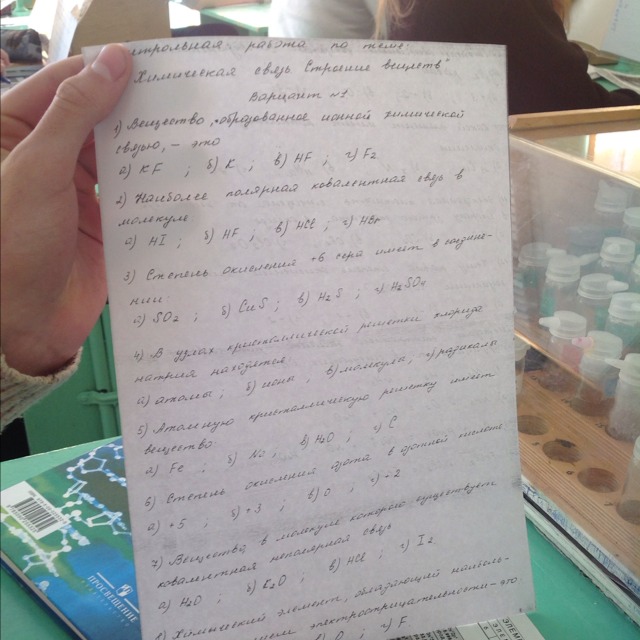 трольная работа по теме:
"Химическая связь. Строение веществ"
Вариант №1
1) Вещество, образованное ионной химической
связью, – это
а) KF ; б) K ; в) HF ; г) F2
2) Наиболее полярная ковалентная связь в
молекуле:
а) HI ; б) HF ; в) HCl ; г) HBr
3) Степень окисления +6 сера имеет в соедине-
нии:
а) SO2 ; б) CuS ; в) H2S ; г) H2SO4
4) В узлах кристаллической решетки хлорида
натрия находятся:
а) атомы ; б) ионы ; в) молекулы ; г) радикалы
5) Атомную кристаллическую решетку имеет
вещество:
а) Fe ; б) Na ; в) H2O ; г) C
6) Степень окисления азота в азотной кислоте
а) +5 ; б) +3 ; в) 0 ; г) -2
7) Вещество, в молекуле которого существует
ковалентная неполярная связь
а) H2O ; б) ; в) HCl ; г) I2
Химический элемент, обладающий наиболь-
электроотрицательности – это
г) F
ПРОСВЕЩЕНИЕ